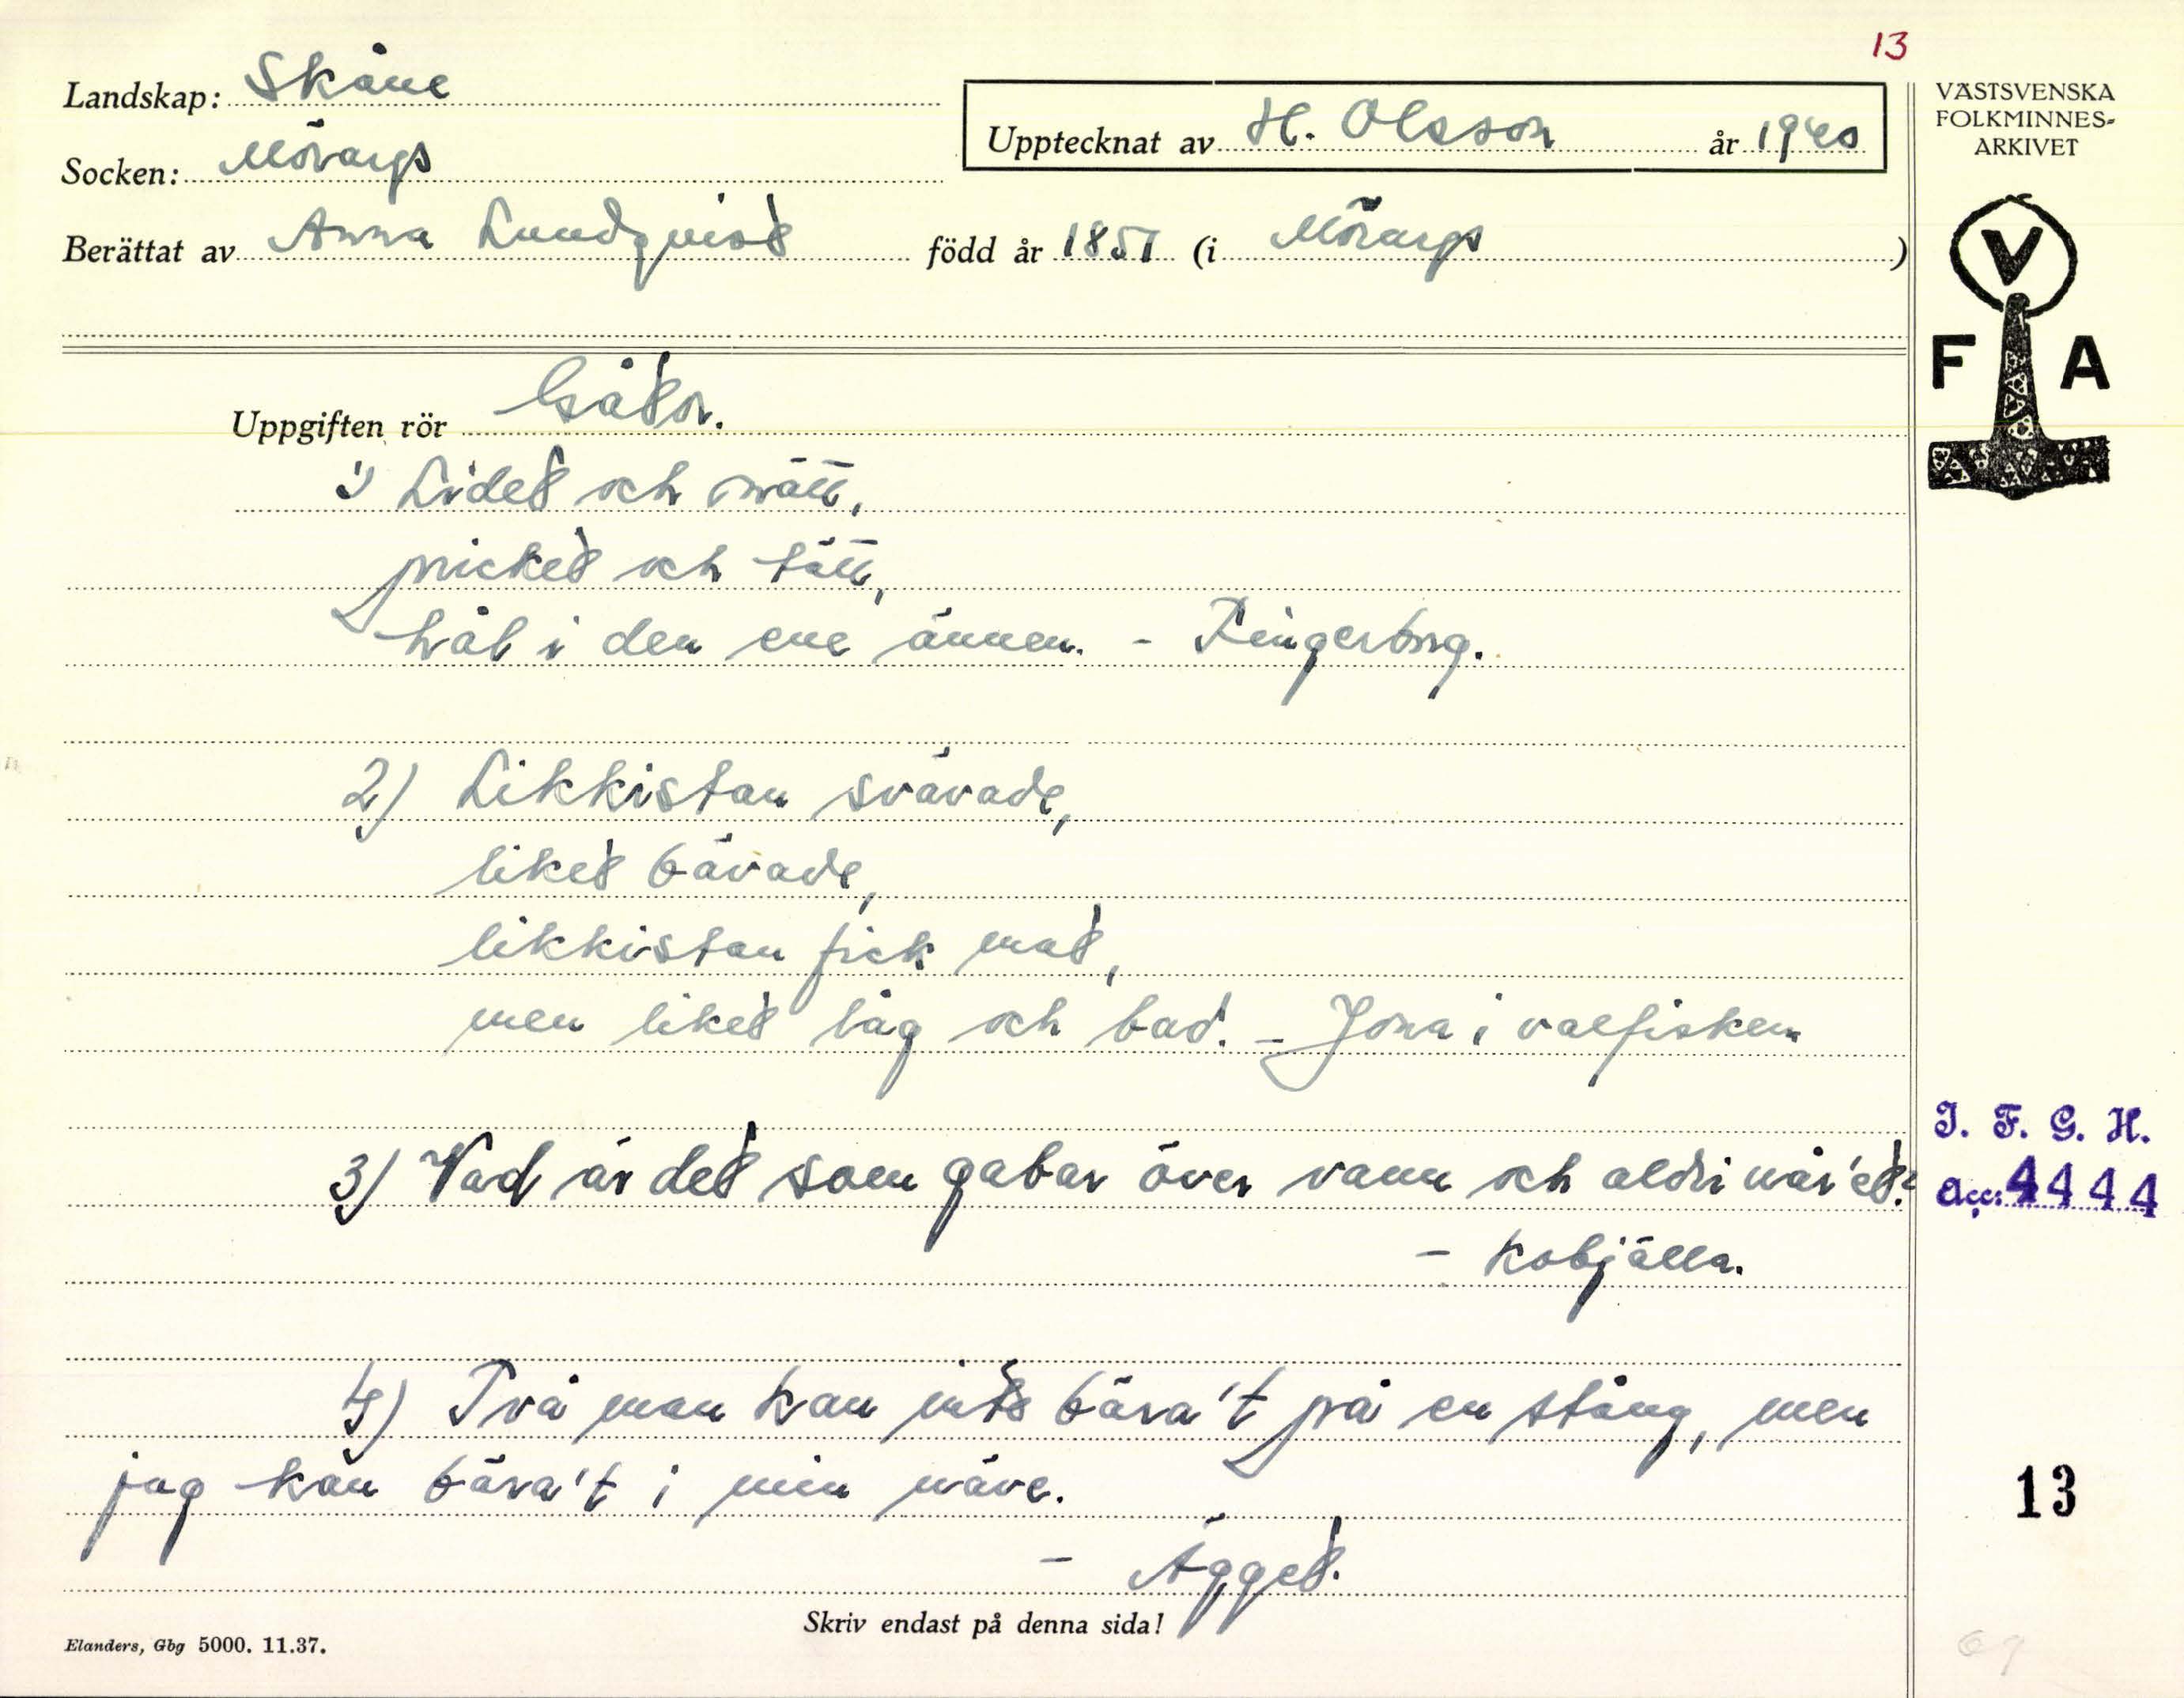 13
Landskap: Skåne
Socken: Mörarps
Upptecknat av H. Olsson år 1940
Berättat av Anna Lundqvist född år 1851 (i Mörarps)
VÄSTSVENSKA
FOLKMINNES-
ARKIVET
V
F A
Uppgiften rör Gåtor.
1) Lidet och nätt,
pricket och tätt,
hål i den ene ännen. - Fingerborg.
2) Likkistan svävade,
liket bävade,
likkistan fick mat,
men liket låg och bad. - Jona i valfisken
3) Vad är det som gabar över vann och aldri når'et?
- Kobjälla.
4) Två man kan inte bära't på en stång, men
jag kan bära't i min näve.
- Ägget.
I. F. G. H.
Acc: 4444
13
Skriv endast på denna sida!
Elanders, Gbg 5000. 11.37.
69